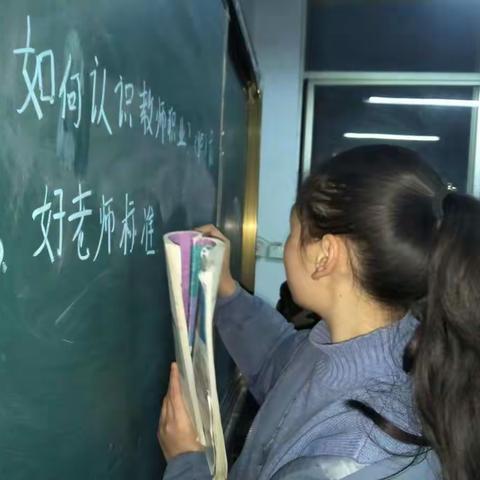 如何认识教师职业？
好老师标准